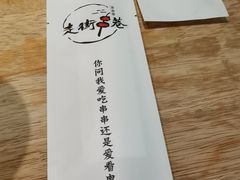 走街串巷
你问我爱吃串串还是爱看电